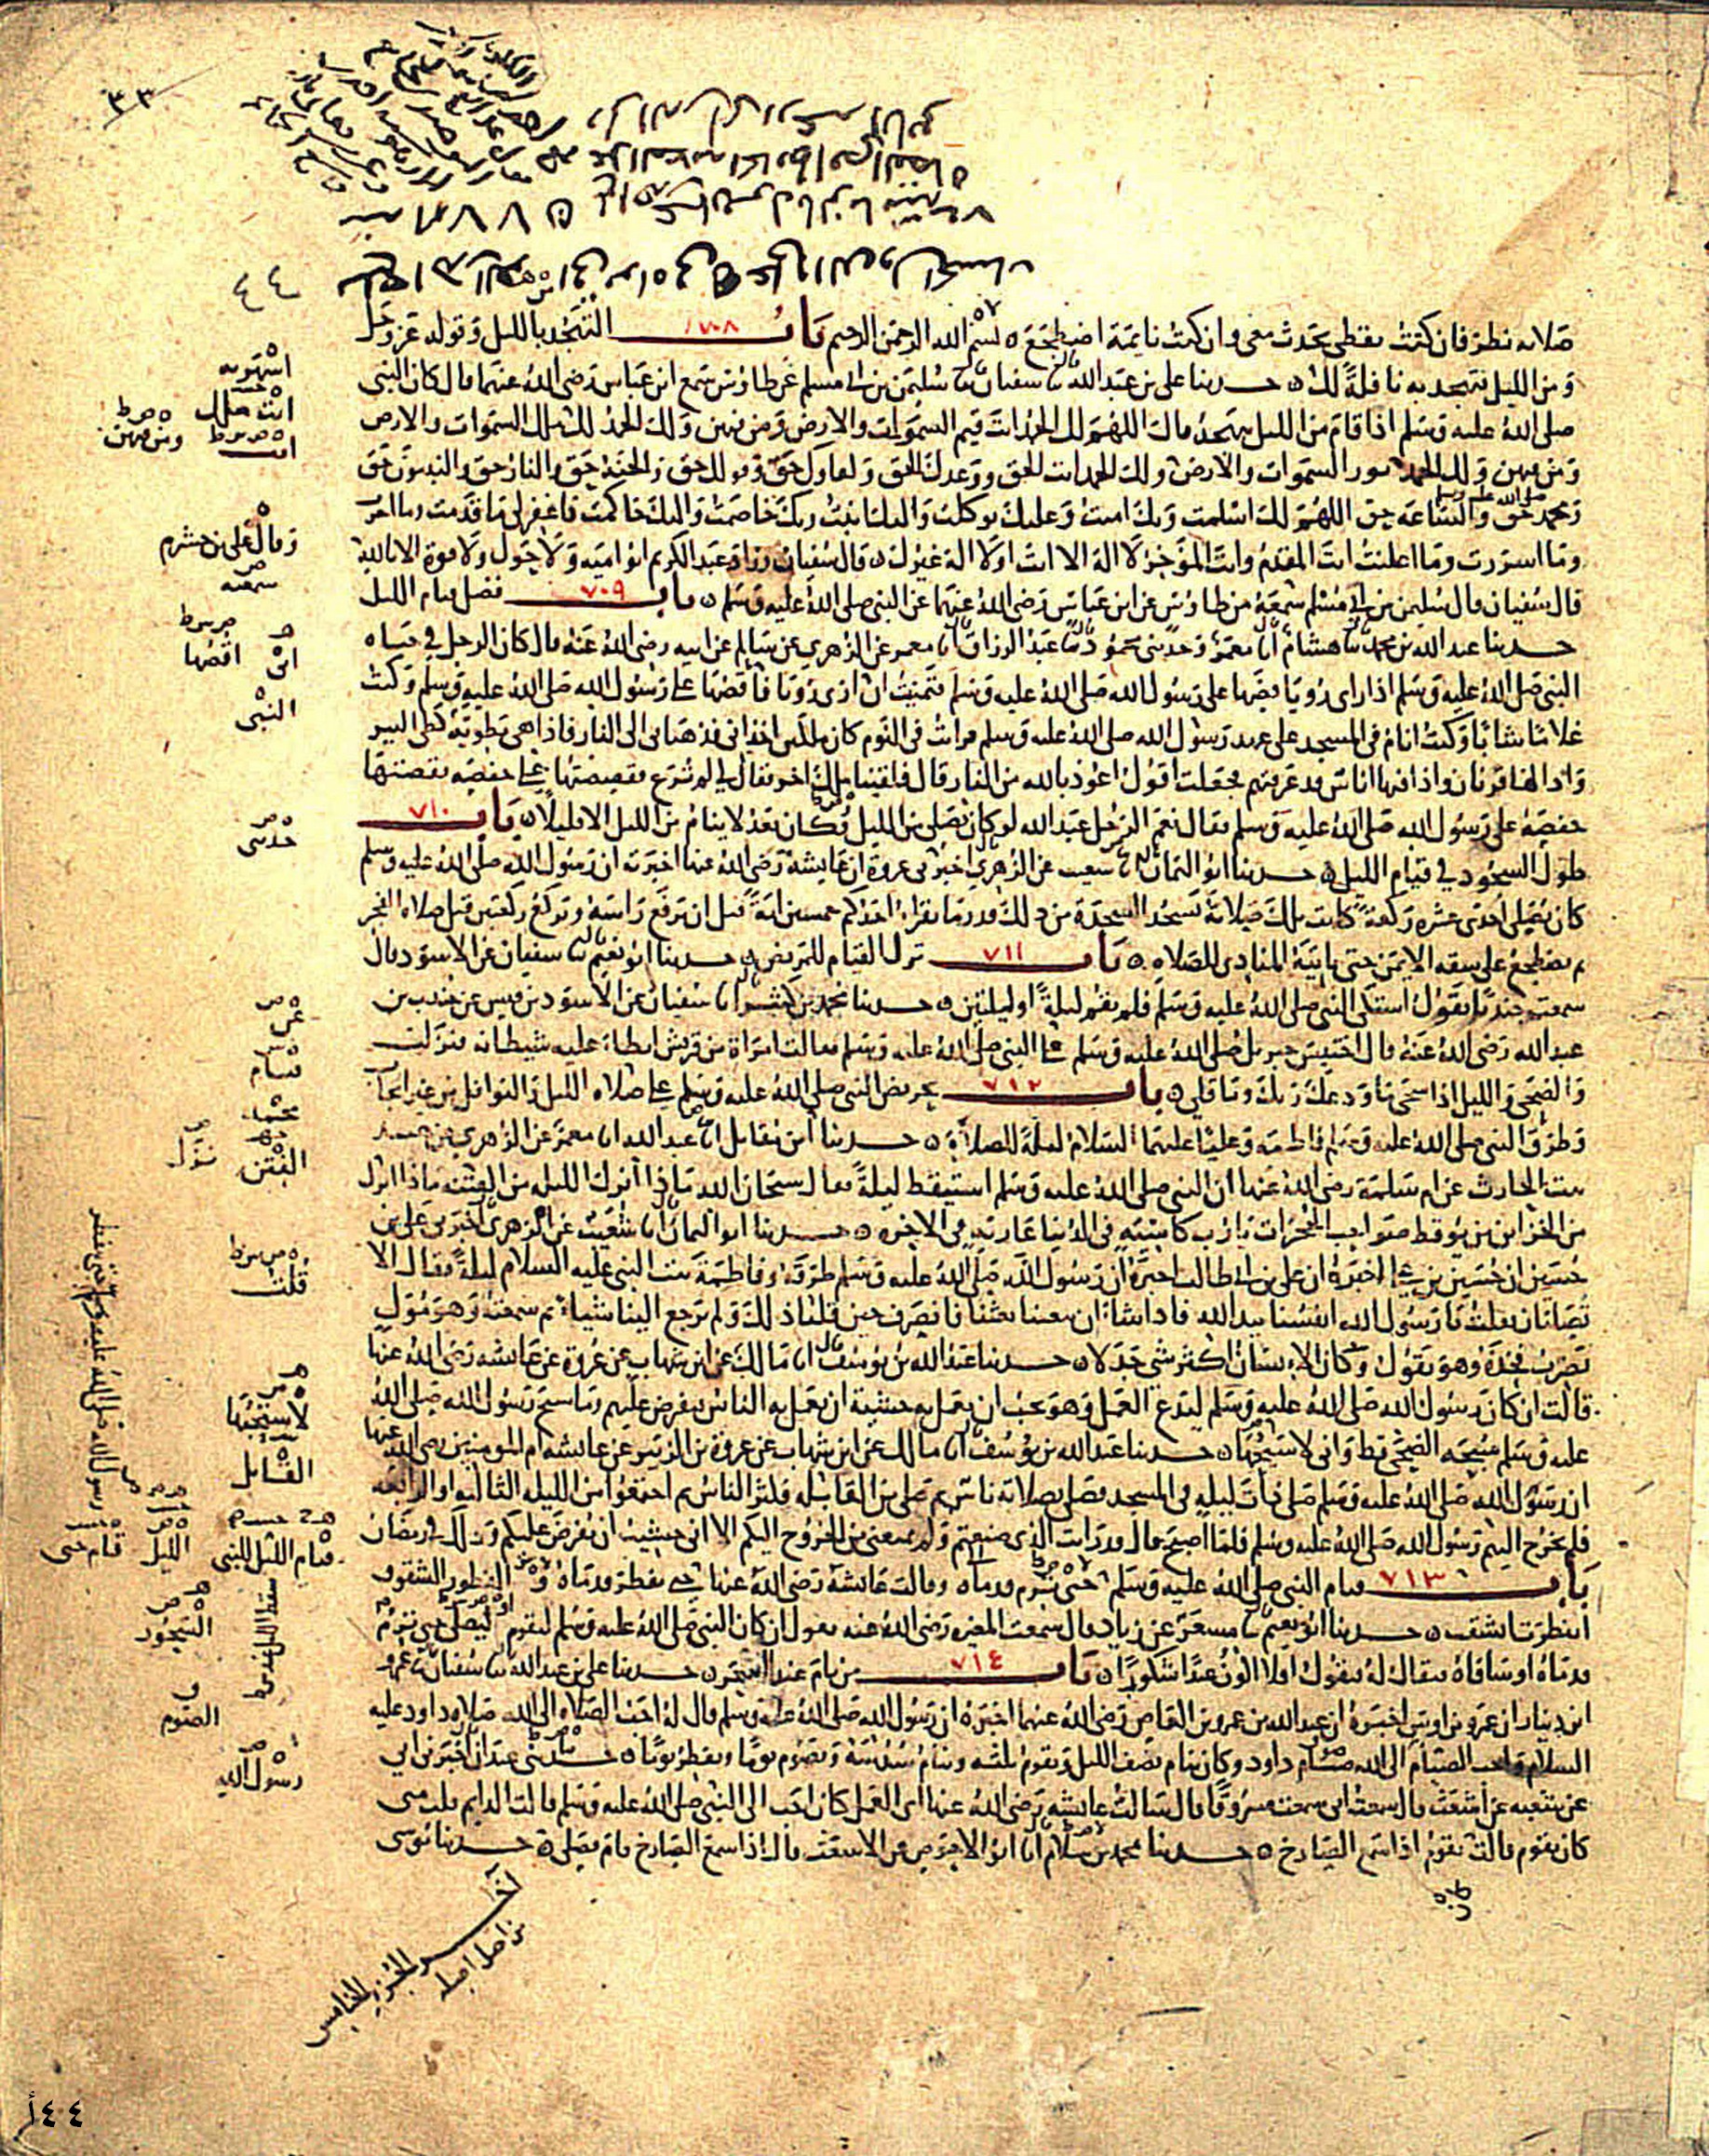 ٤٤
صلاته نظر فان كنت يقظى تحدث معى وان كنت نايمة اضطجع ه بسم الله الرحمن الرحيم باب ٧٠٨ التهجد بالليل وقوله عز وجل
ومن الليل فتهجد به نافلة لك ه حدثنا على بن عبد الله ثنا سفيان ثنا سليمن بن ابي مسلم عن طاوس سمع ابن عباس رضى الله عنهما قال كان النبى
صلى الله عليه وسلم اذا قام من الليل يتهجد قال اللهم لك الحمد انت قيم السموات والارض ومن فيهن ولك الحمد لك ملك السموات والارض
ومن فيهن ولك الحمد نور السموات والارض ولك الحمد انت الحق ووعدك الحق ولقاوك حق وقولك حق والجنة حق والنار حق والنبيون حق
ومحمد صلى الله عليه وسلم حق والساعة حق اللهم لك اسلمت وبك امنت وعليك توكلت واليك انبت وبك خاصمت واليك حاكمت فاغفر لى ما قدمت وما اخرت
وما اسررت وما اعلنت انت المقدم وانت المؤخر لا اله الا انت او لا اله غيرك ه قال سفيان وزاد عبد الكريم ابو امية ولا حول ولا قوة الا بالله
قال سفيان قال سليمن بن ابي مسلم سمعه من طاوس عن ابن عباس رضى الله عنهما عن النبى صلى الله عليه وسلم ه باب ٧٠٩ فضل قيام الليل
حدثنا عبد الله بن محمد ثنا هشام انا معمر وحدثنى محمود ثنا عبد الرزاق انا معمر عن الزهري عن سالم عن ابيه رضى الله عنه قال كان الرجل في حياه
النبى صلى الله عليه وسلم اذا راى رؤيا قصها على رسول الله صلى الله عليه وسلم فتمنيت ان ارى رؤيا فاقصها على رسول الله صلى الله عليه وسلم وكنت
غلاما شابا وكنت انام فى المسجد على عهد رسول الله صلى الله عليه وسلم فرايت فى النوم كان ملكين اخذانى فذهبا بى الى النار فاذا هى مطوية كطى البير
واذا لها قرنان واذا فيها اناس قد عرفتهم فجعلت اقول اعوذ بالله من النار قال فلقينا ملك اخر فقال لي لم ترع فقصصتها على حفصة فقصتها
حفصة على رسول الله صلى الله عليه وسلم فقال نعم الرجل عبد الله لو كان يصلى من الليل فكان بعد لا ينام من الليل الا قليلا ه باب ٧١٠
طول السجود في قيام الليل ه حدثنا ابو اليمان انا شعيب عن الزهري اخبرنى عروة ان عايشة رضى الله عنها اخبرته ان رسول الله صلى الله عليه وسلم
كان يصلى احدى عشرة ركعة كانت تلك صلاته يسجد السجدة من ذلك قدر ما يقرا احدكم خمسين اية قبل ان يرفع راسه ويركع ركعتين قبل صلاه الفجر
ثم يضطجع على شقه الايمن حتى ياتيه المنادى للصلاه ه باب ٧١١ ترك القيام للمريض ه حدثنا ابو نعيم ثنا سفيان عن الاسود قال
سمعت جندبا يقول اشتكى النبى صلى الله عليه وسلم فلم يقم ليلة او ليلتين ه حدثنا محمد بن كثير انا سفيان عن الاسود بن قيس عن جندب بن
عبد الله رضى الله عنه قال احتبس جبريل صلى الله عليه وسلم على النبى صلى الله عليه وسلم فقالت امراة من قريش ابطا عليه شيطانه فنزلت
والضحى والليل اذا سجى ما ودعك ربك وما قلى ه باب ٧١٢ تحريض النبى صلى الله عليه وسلم على صلاه الليل والنوافل من غير ايجاب
وطرق النبى صلى الله عليه وسلم فاطمة وعليا عليهما السلام ليلة للصلاة ه حدثنا ابن مقاتل انا عبد الله انا معمر عن الزهري عن هند
بنت الحارث عن ام سلمة رضى الله عنها ان النبى صلى الله عليه وسلم استيقظ ليلة فقال سبحان الله ماذا انزل الليلة من الفتنة ماذا انزل
من الخزاين من يوقظ صواحب الحجرات يا رب كاسية فى الدنيا عارية فى الاخرة ه حدثنا ابو اليمان انا شعيب عن الزهري اخبرنى على بن
حسين ان حسين بن على اخبره ان على بن ابي طالب اخبره ان رسول الله صلى الله عليه وسلم طرقه وفاطمة بنت النبى عليه السلام ليلة فقال الا
تصليان فقلت يا رسول الله انفسنا بيد الله فاذا شا ان يبعثنا بعثنا فانصرف حين قلنا ذلك ولم يرجع الينا شيا ثم سمعته وهو مول
يضرب فخذه وهو يقول وكان الانسان اكثر شى جدلا ه حدثنا عبد الله بن يوسف انا مالك عن ابن شهاب عن عروة عن عايشة رضى الله عنها
قالت ان كان رسول الله صلى الله عليه وسلم ليدع العمل وهو يحب ان يعمل به خشية ان يعمل به الناس فيفرض عليهم وما سبح رسول الله صلى الله
عليه وسلم سبحة الضحى قط وانى لاسبحها ه حدثنا عبد الله بن يوسف انا مالك عن ابن شهاب عن عروة بن الزبير عن عايشة ام المومنين رضى الله عنها
ان رسول الله صلى الله عليه وسلم صلى ذات ليلة فى المسجد فصلى بصلاته ناس ثم صلى من القابلة فكثر الناس ثم اجتمعوا من الليلة الثالثة او الرابعة
فلم يخرج اليهم رسول الله صلى الله عليه وسلم فلما اصبح قال قد رايت الذى صنعتم ولم يمنعنى من الخروج اليكم الا انى خشيت ان يفرض عليكم وذلك في رمضان
باب ٧١٣ قيام النبى صلى الله عليه وسلم حتى ترم قدماه وقالت عايشة رضى الله عنها حتى تفطر قدماه و الفطور الشقوق
انفطرت انشقت ه حدثنا ابو نعيم ثنا مسعر عن زياد قال سمعت المغيرة رضى الله عنه يقول ان كان النبى صلى الله عليه وسلم ليقوم ليصلى حتى ترم
قدماه او ساقاه فيقال له فيقول افلا اكون عبدا شكورا ه باب ٧١٤ من نام عند السحر ه حدثنا على بن عبد الله ثنا سفيان ثنا عمرو
ابن دينار ان عمرو بن اوس اخبره ان عبد الله بن عمرو بن العاص رضى الله عنهما اخبره ان رسول الله صلى الله عليه وسلم قال له احب الصلاه الى الله صلاه داود عليه
السلام واحب الصيام الى الله صيام داود وكان ينام نصف الليل ويقوم ثلثه وينام سدسه ويصوم يوما ويفطر يوما ه حدثنى عبدان اخبرنى ابي
عن شعبة عن اشعث قال سمعت ابى سمعت مسروقا قال سالت عايشة رضى الله عنها اى العمل كان احب الى النبى صلى الله عليه وسلم قالت الدايم قلت متى
كان يقوم قالت يقوم اذا سمع الصارخ ه حدثنا محمد بن سلام انا ابو الاحوص عن الاشعث قال اذا سمع الصارخ قام يصلى ه حدثنا موسى
وقال على بن خشرم
سمعته
اقصها
النبى
حدثنى
الفتن
قلت
لاستحبها
القابل
قيام الليل للنبى
الليل
السجود
الصوم
رسول الله
اخر الجزء الخامس
من اصل اصله
٤٤أ